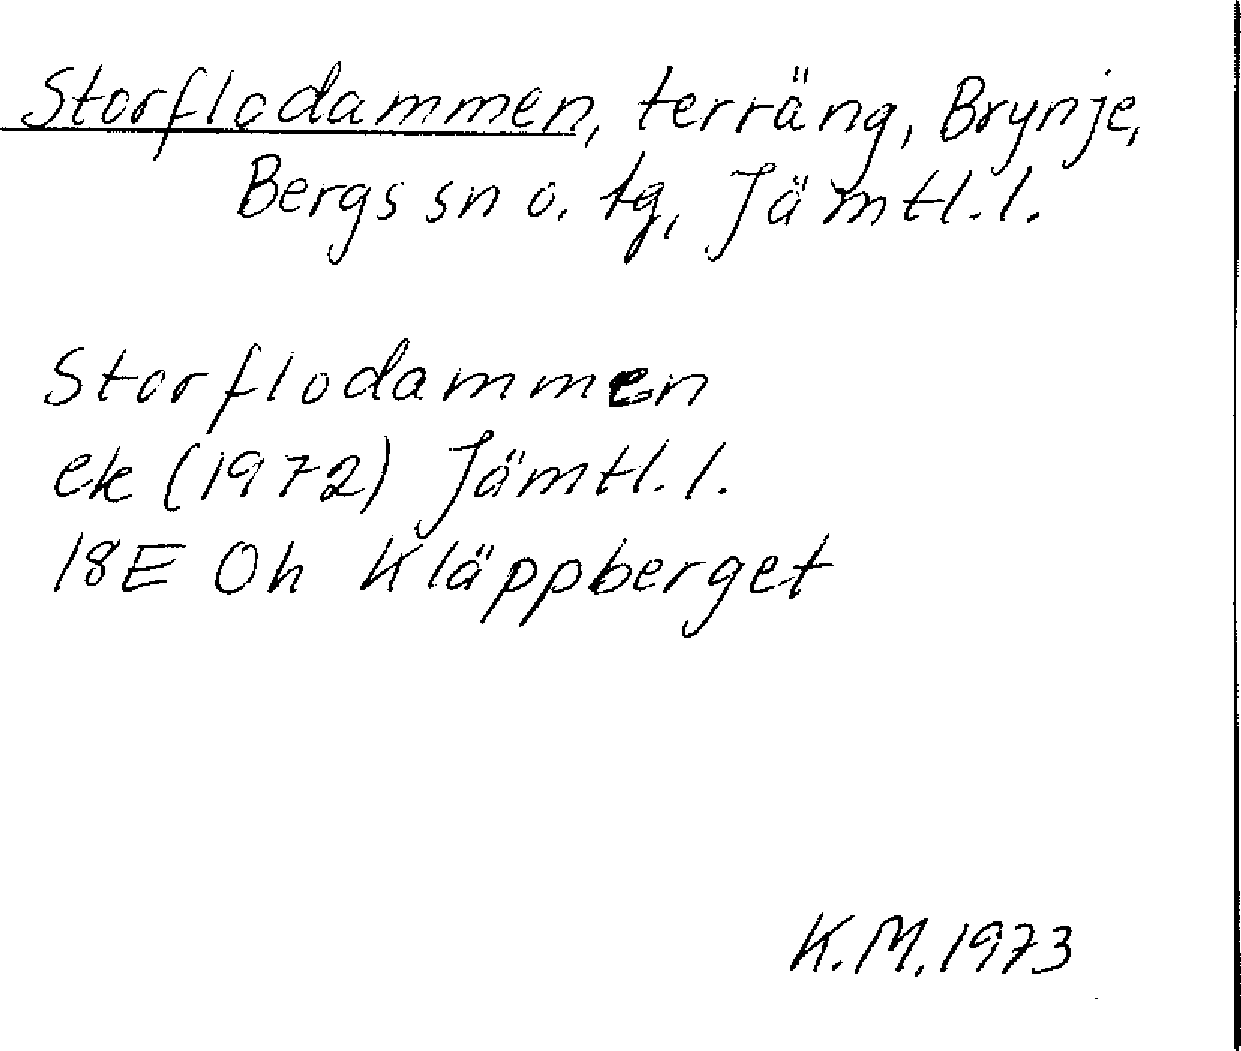 Storflodammen, terräng, Brynje,
Bergs sn o. tg, Jämtl. l.
Storflodammen
ek (1972) Jämtl. l.
18E 0h Kläppberget
K.M. 1973